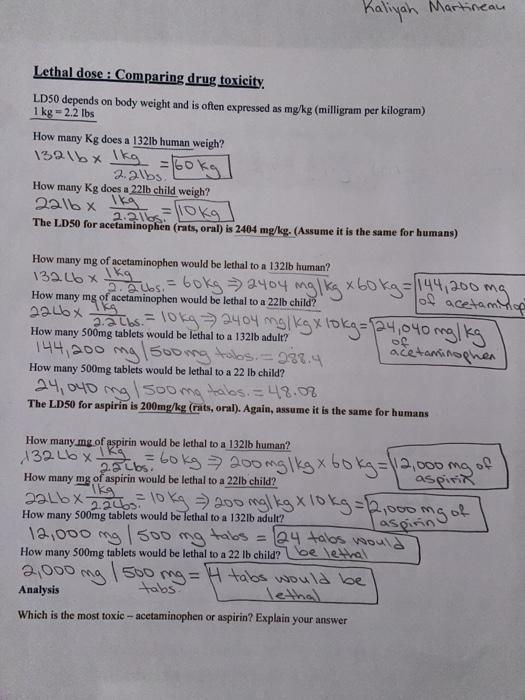 Kaliyah Martineau
Lethal dose : Comparing drug toxicity.
LD50 depends on body weight and is often expressed as mg/kg (milligram per kilogram)
1 kg = 2.2 lbs
How many Kg does a 132lb human weigh?
132lb x 1kg / 2.2lbs. = 60 kg
How many Kg does a 22lb child weigh?
22lb x 1kg / 2.2lbs. = 10kg
The LD50 for acetaminophen (rats, oral) is 2404 mg/kg. (Assume it is the same for humans)
How many mg of acetaminophen would be lethal to a 132lb human?
132Lb x 1kg / 2.2Lbs. = 60kg ⇒ 2404 mg/kg x 60kg = 144,200 mg of
How many mg of acetaminophen would be lethal to a 22lb child?
22Lb x 1kg / 2.2Lbs. = 10kg ⇒ 2404 mg/kg x 10kg = 24,040 mg/kg of acetaminophen
How many 500mg tablets would be lethal to a 132lb adult?
144,200 mg / 500mg tabs. = 288.4
How many 500mg tablets would be lethal to a 22 lb child?
24,040 mg / 500mg tabs. = 48.08
The LD50 for aspirin is 200mg/kg (rats, oral). Again, assume it is the same for humans
How many mg of aspirin would be lethal to a 132lb human?
132Lb x 1kg / 2.2Lbs. = 60kg ⇒ 200mg/kg x 60kg = 12,000 mg of aspirin
How many mg of aspirin would be lethal to a 22lb child?
22Lb x 1kg / 2.2Lbs. = 10kg ⇒ 200 mg/kg x 10kg = 2,000 mg of aspirin
How many 500mg tablets would be lethal to a 132lb adult?
12,000 mg / 500 mg tabs = 24 tabs would be lethal
How many 500mg tablets would be lethal to a 22 lb child?
2,000 mg / 500 mg tabs. = 4 tabs would be lethal
Analysis
Which is the most toxic – acetaminophen or aspirin? Explain your answer